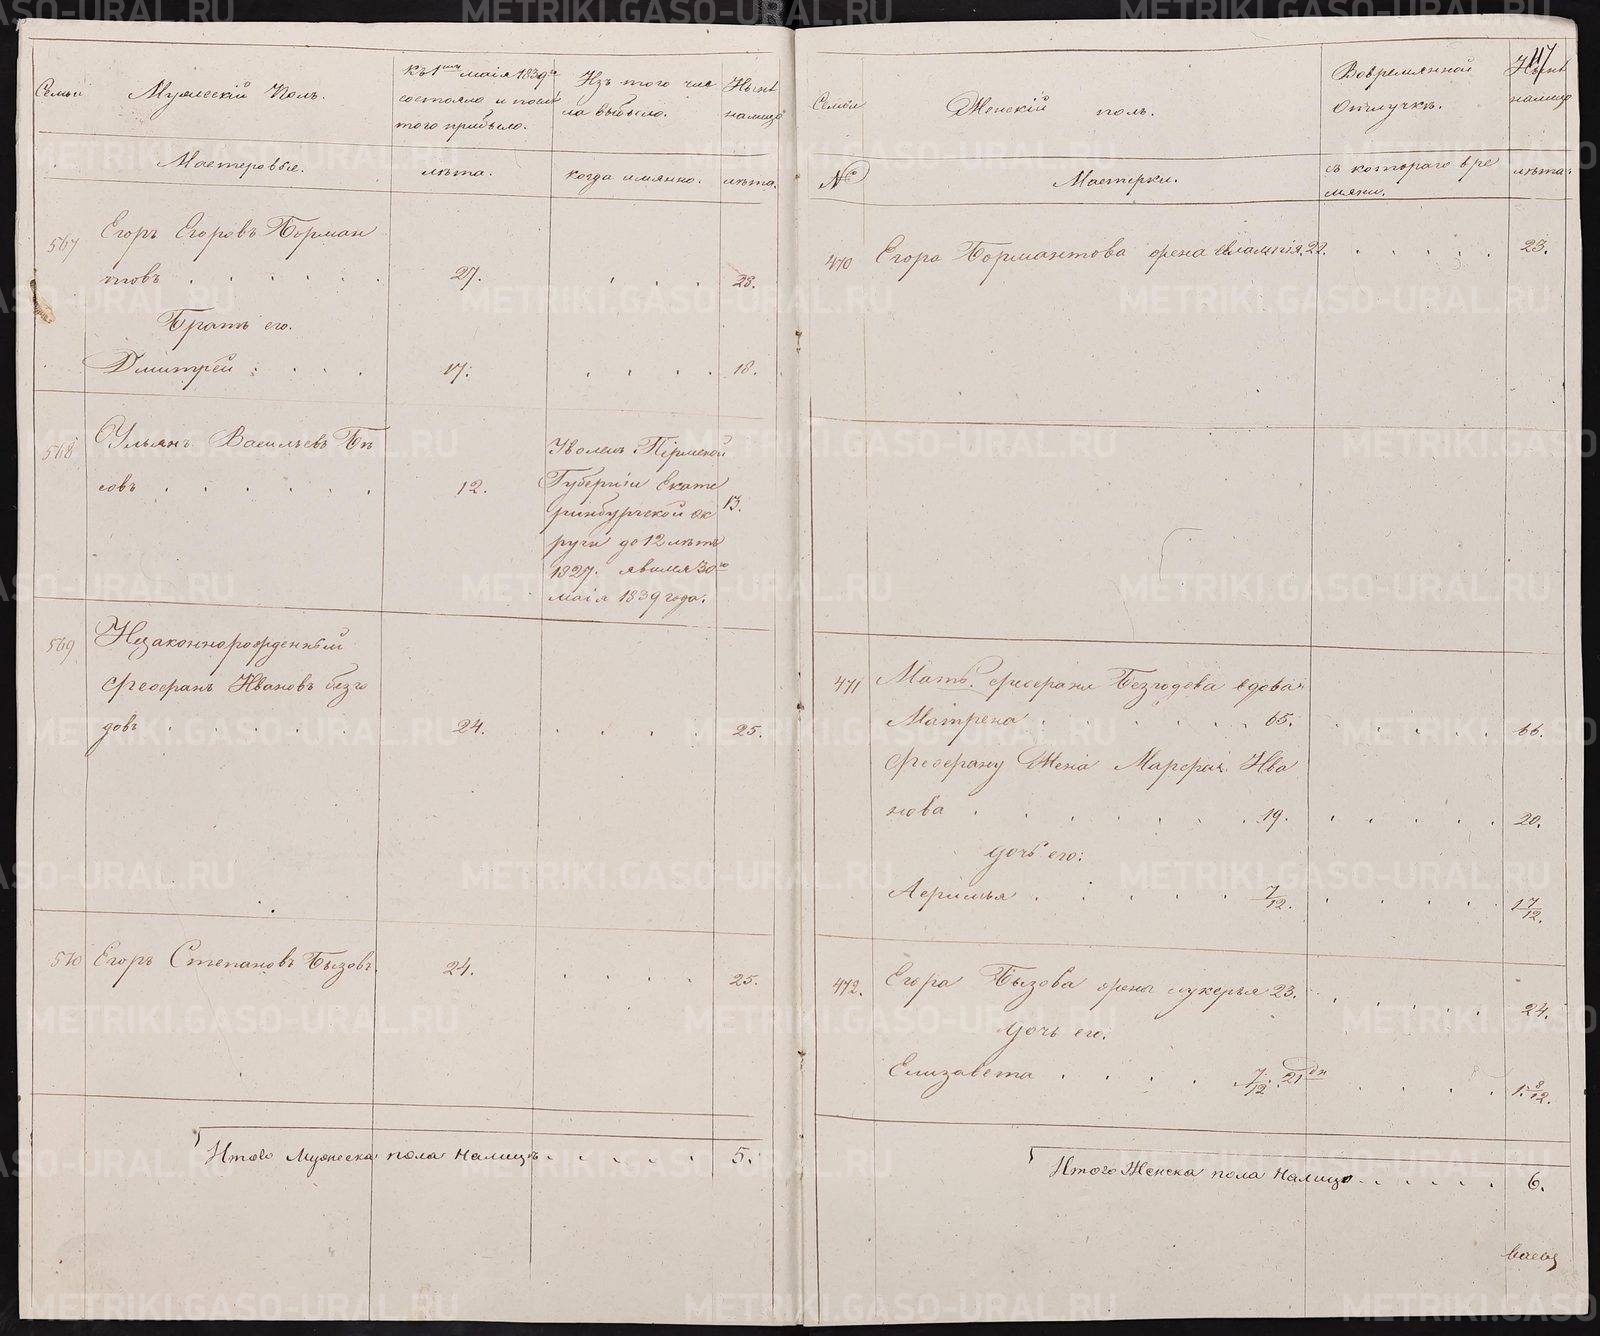 Семьи
Мужескій Полъ.
Къ 1му маія 1839го
состояло и посл
того прибыло.
Изъ того чис
ла выбыло.
Нынѣ
налицо
Мастеровые.
лѣта.
когда имянно.
лѣта.
567
Егоръ Егоровъ Борман
товъ
27.
28.
Братъ его.
Дмитрей
17.
18.
568
Ульянъ Васильевъ Бѣ
совъ
12.
Уволенъ Пермской
Губерніи Екате
ринбургской ок
руги до 12 лѣтъ
1827. явился 30го
маія 1839 года.
13.
569
Незаконнорожденный
Феофанъ Ивановъ безго
довъ
24.
25.
570
Егоръ Степановъ Бызовъ.
24.
25.
Итого Мужеска пола налицо
5.
117
Семьи
Женскій полъ.
Вовремянной
Отлучкѣ.
Нынѣ
налицо
№
Мастерки.
съ котораго вре
мяни.
лѣта.
470
Егора Бормантова жена Евлампія. 22.
23.
471
Мать Феофана Безгодова вдова
Матрена 65.
66.
Феофану Жена Марфа Ива
нова 19.
20.
дочь его:
7/12.
1 7/12.
472.
Егора Бызова жена лукерья 23.
24.
дочь его.
Елизавета 7/12. 21 дн
1. 8/12.
Итого Женска пола налицо
6.